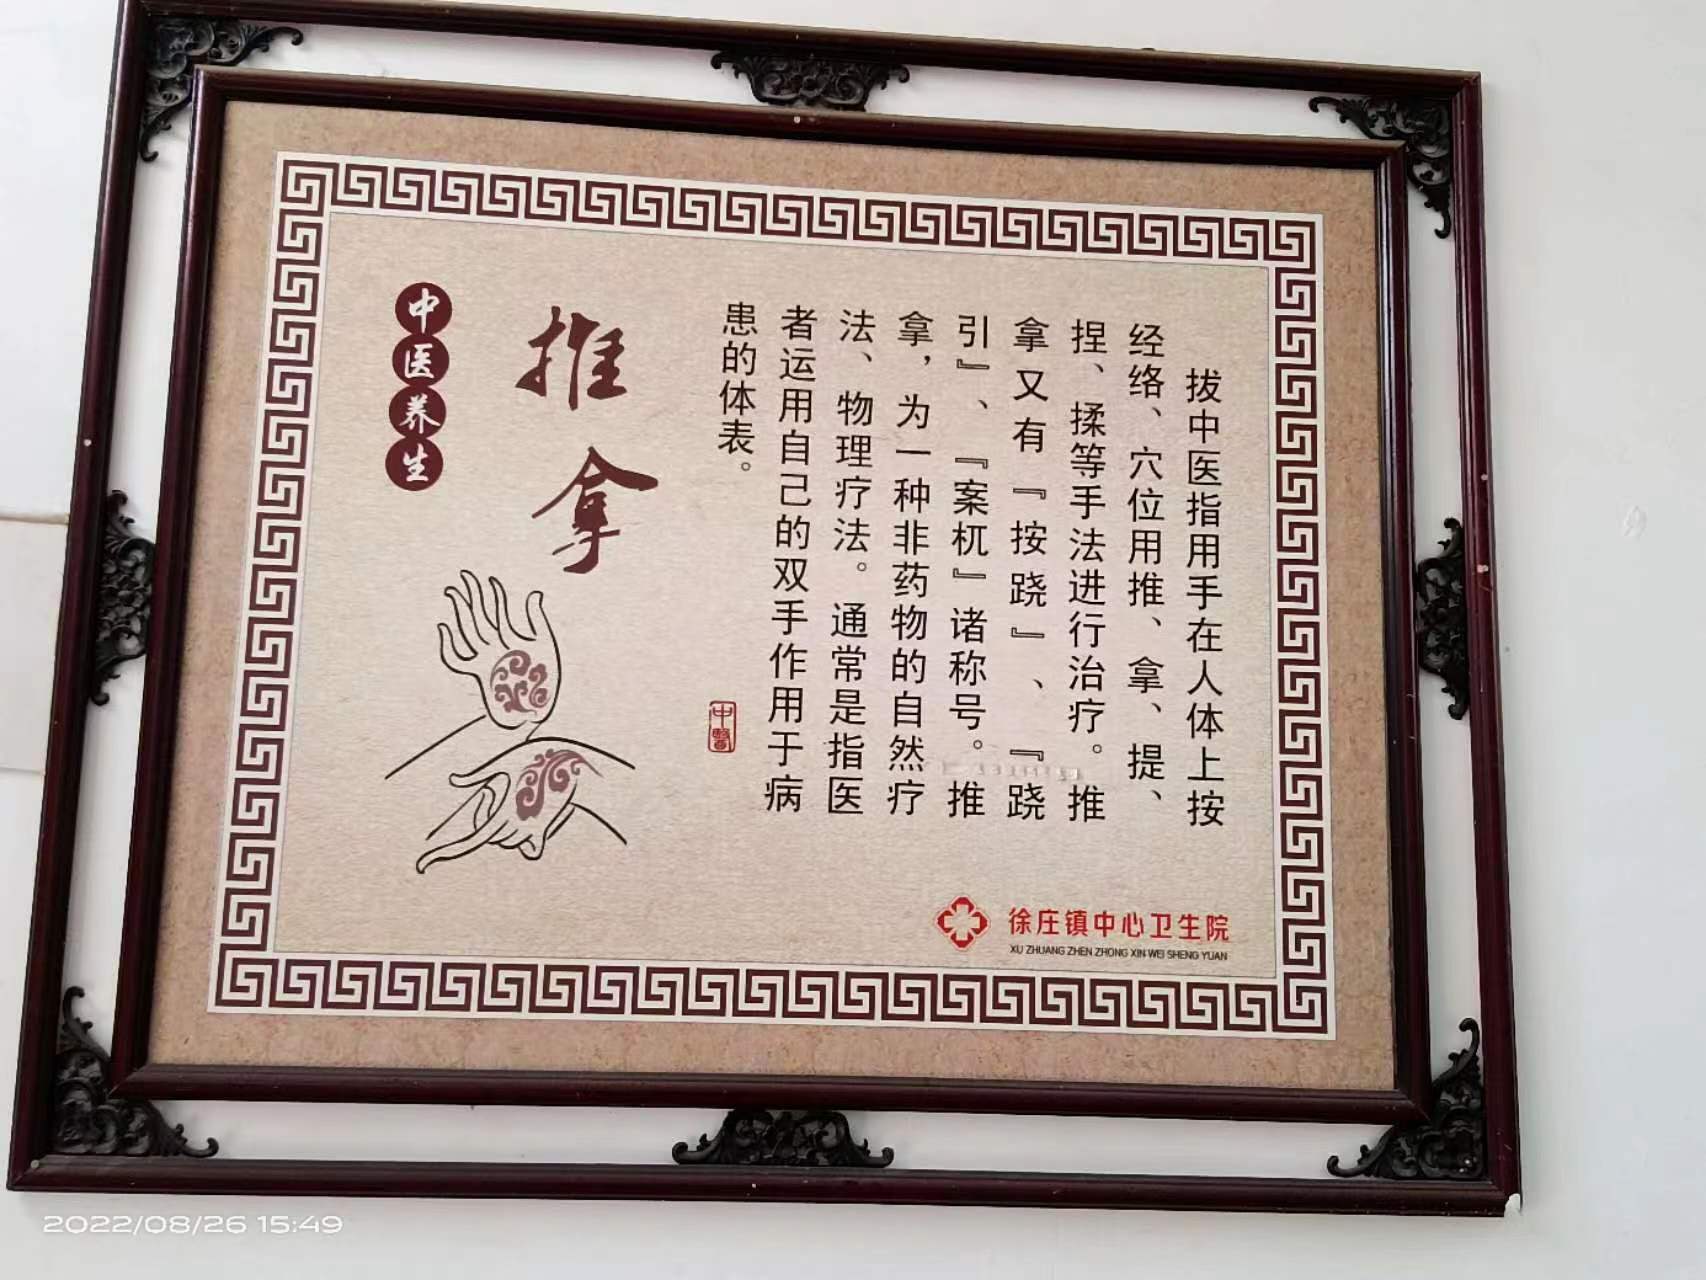 中医养生
推拿
拔中医指用手在人体上按
经络、穴位用推、拿、提、
捏、揉等手法进行治疗。推
拿又有『按跷』、『跷
引』、『案杌』诸称号。推
拿，为一种非药物的自然疗
法、物理疗法。通常是指医
者运用自己的双手作用于病
患的体表。
中醫
徐庄镇中心卫生院
XU ZHUANG ZHEN ZHONG XIN WEI SHENG YUAN
2022/08/26 15:49